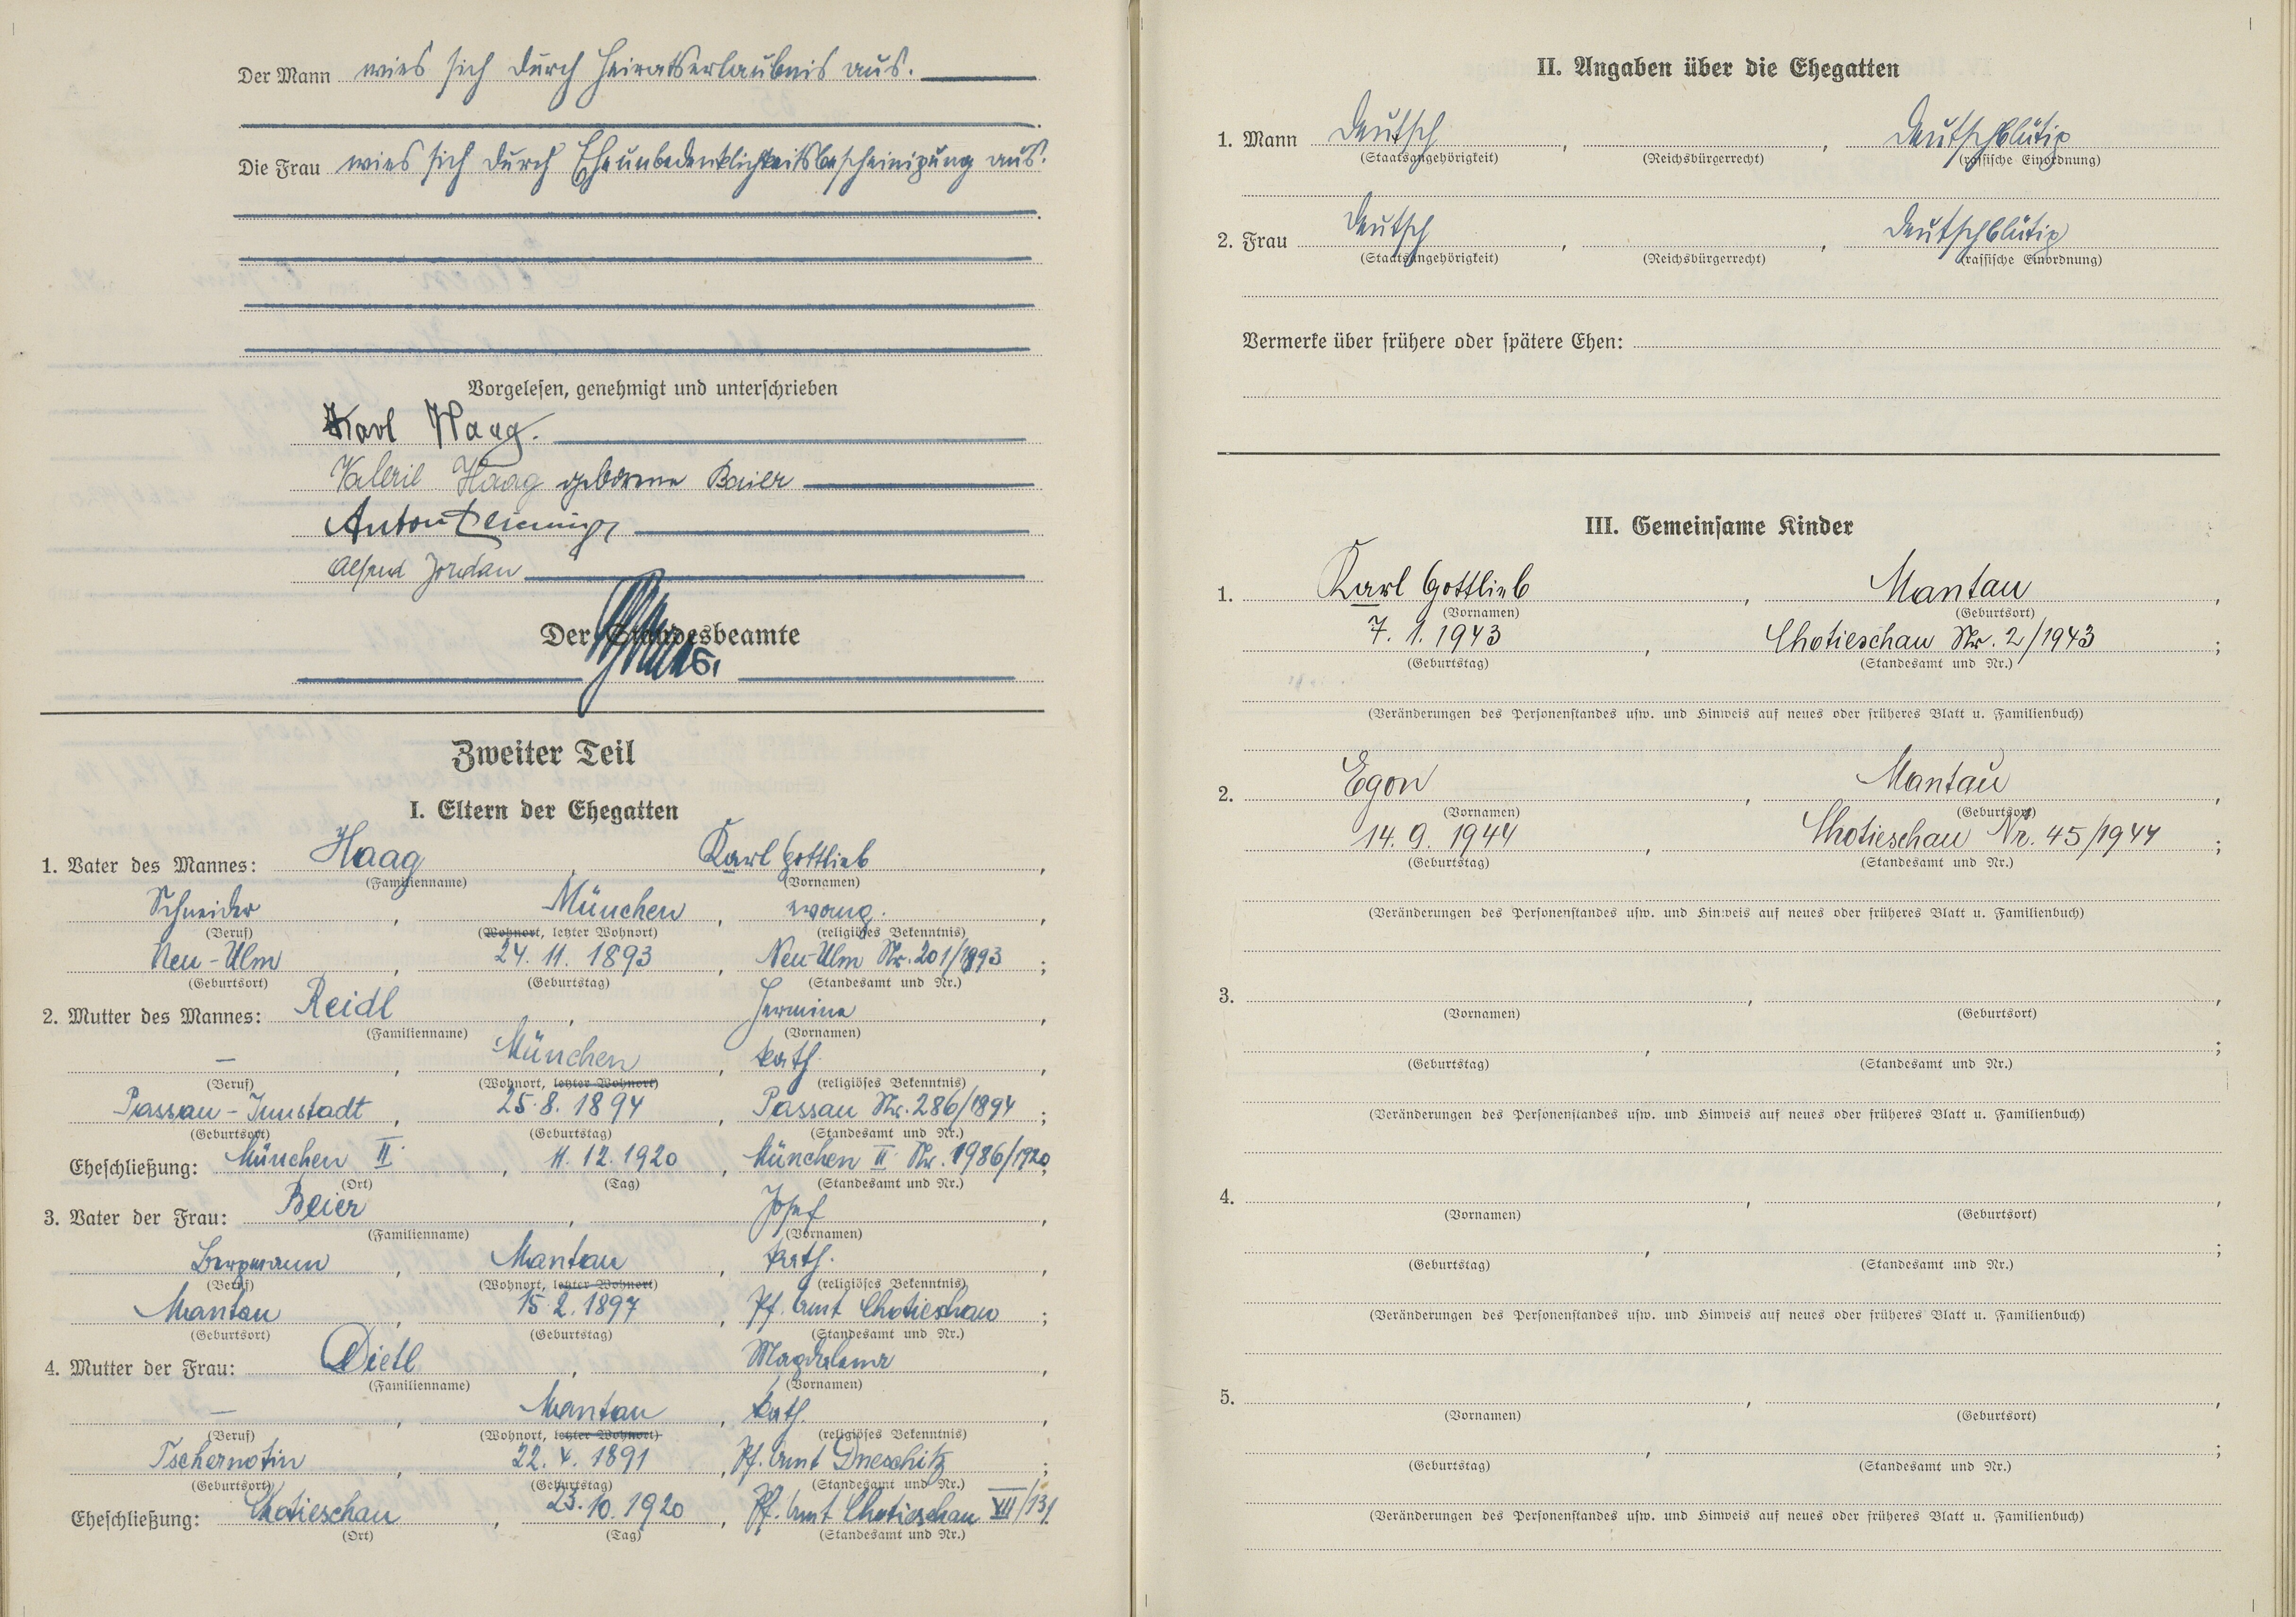 Der Mann wies sich durch Heiratserlaubnis aus.
Die Frau wies sich durch Eheunbedenklichkeitsbescheinigung aus.
Vorgelesen, genehmigt und unterschrieben
Karl Haag.
Valerie Haag geborene Baier
Anton
Alfred Jordan
Der Standesbeamte
Zweiter Teil
I. Eltern der Ehegatten
1. Vater des Mannes: Haag, Karl Gottlieb,
(Familienname) (Vornamen)
Schneider, München, evang.,
(Beruf) (Wohnort, letzter Wohnort) (religiöses Bekenntnis)
Neu-Ulm, 24. 11. 1893, Neu-Ulm Nr. 201/1893;
(Geburtsort) (Geburtstag) (Standesamt und Nr.)
2. Mutter des Mannes: Reidl, Hermine,
(Familienname) (Vornamen)
—, München, kath.,
(Beruf) (Wohnort, letzter Wohnort) (religiöses Bekenntnis)
Passau-Innstadt, 25. 8. 1894, Passau Nr. 286/1894;
(Geburtsort) (Geburtstag) (Standesamt und Nr.)
Eheschließung: München II, 11. 12. 1920, München II Nr. 1986/1920;
(Ort) (Tag) (Standesamt und Nr.)
3. Vater der Frau: Beier, Josef,
(Familienname) (Vornamen)
Bergmann, Mantau, kath.,
(Beruf) (Wohnort, letzter Wohnort) (religiöses Bekenntnis)
Mantau, 15. 2. 1897, Pf. Amt Chotieschau;
(Geburtsort) (Geburtstag) (Standesamt und Nr.)
4. Mutter der Frau: Dietl, Magdalena,
(Familienname) (Vornamen)
—, Mantau, kath.,
(Beruf) (Wohnort, letzter Wohnort) (religiöses Bekenntnis)
Tschernotin, 22. 4. 1891, Pf. Amt Dneschitz;
(Geburtsort) (Geburtstag) (Standesamt und Nr.)
Eheschließung: Chotieschau, 23. 10. 1920, Pf. Amt Chotieschau VII/131
(Ort) (Tag) (Standesamt und Nr.)
II. Angaben über die Ehegatten
1. Mann Deutsch, , Deutschblütig
(Staatsangehörigkeit) (Reichsbürgerrecht) (rassische Einordnung)
2. Frau Deutsch, , Deutschblütig
(Staatsangehörigkeit) (Reichsbürgerrecht) (rassische Einordnung)
Vermerke über frühere oder spätere Ehen:
III. Gemeinsame Kinder
1. Karl Gottlieb, Mantau,
(Vornamen) (Geburtsort)
7. 1. 1943, Chotieschau Nr. 2/1943;
(Geburtstag) (Standesamt und Nr.)
(Veränderungen des Personenstandes usw. und Hinweis auf neues oder früheres Blatt u. Familienbuch)
2. Egon, Mantau,
(Vornamen) (Geburtsort)
14. 9. 1944, Chotieschau Nr. 45/1944;
(Geburtstag) (Standesamt und Nr.)
(Veränderungen des Personenstandes usw. und Hinweis auf neues oder früheres Blatt u. Familienbuch)
3. , ,
(Vornamen) (Geburtsort)
, ;
(Geburtstag) (Standesamt und Nr.)
(Veränderungen des Personenstandes usw. und Hinweis auf neues oder früheres Blatt u. Familienbuch)
4. , ,
(Vornamen) (Geburtsort)
, ;
(Geburtstag) (Standesamt und Nr.)
(Veränderungen des Personenstandes usw. und Hinweis auf neues oder früheres Blatt u. Familienbuch)
5. , ,
(Vornamen) (Geburtsort)
, ;
(Geburtstag) (Standesamt und Nr.)
(Veränderungen des Personenstandes usw. und Hinweis auf neues oder früheres Blatt u. Familienbuch)